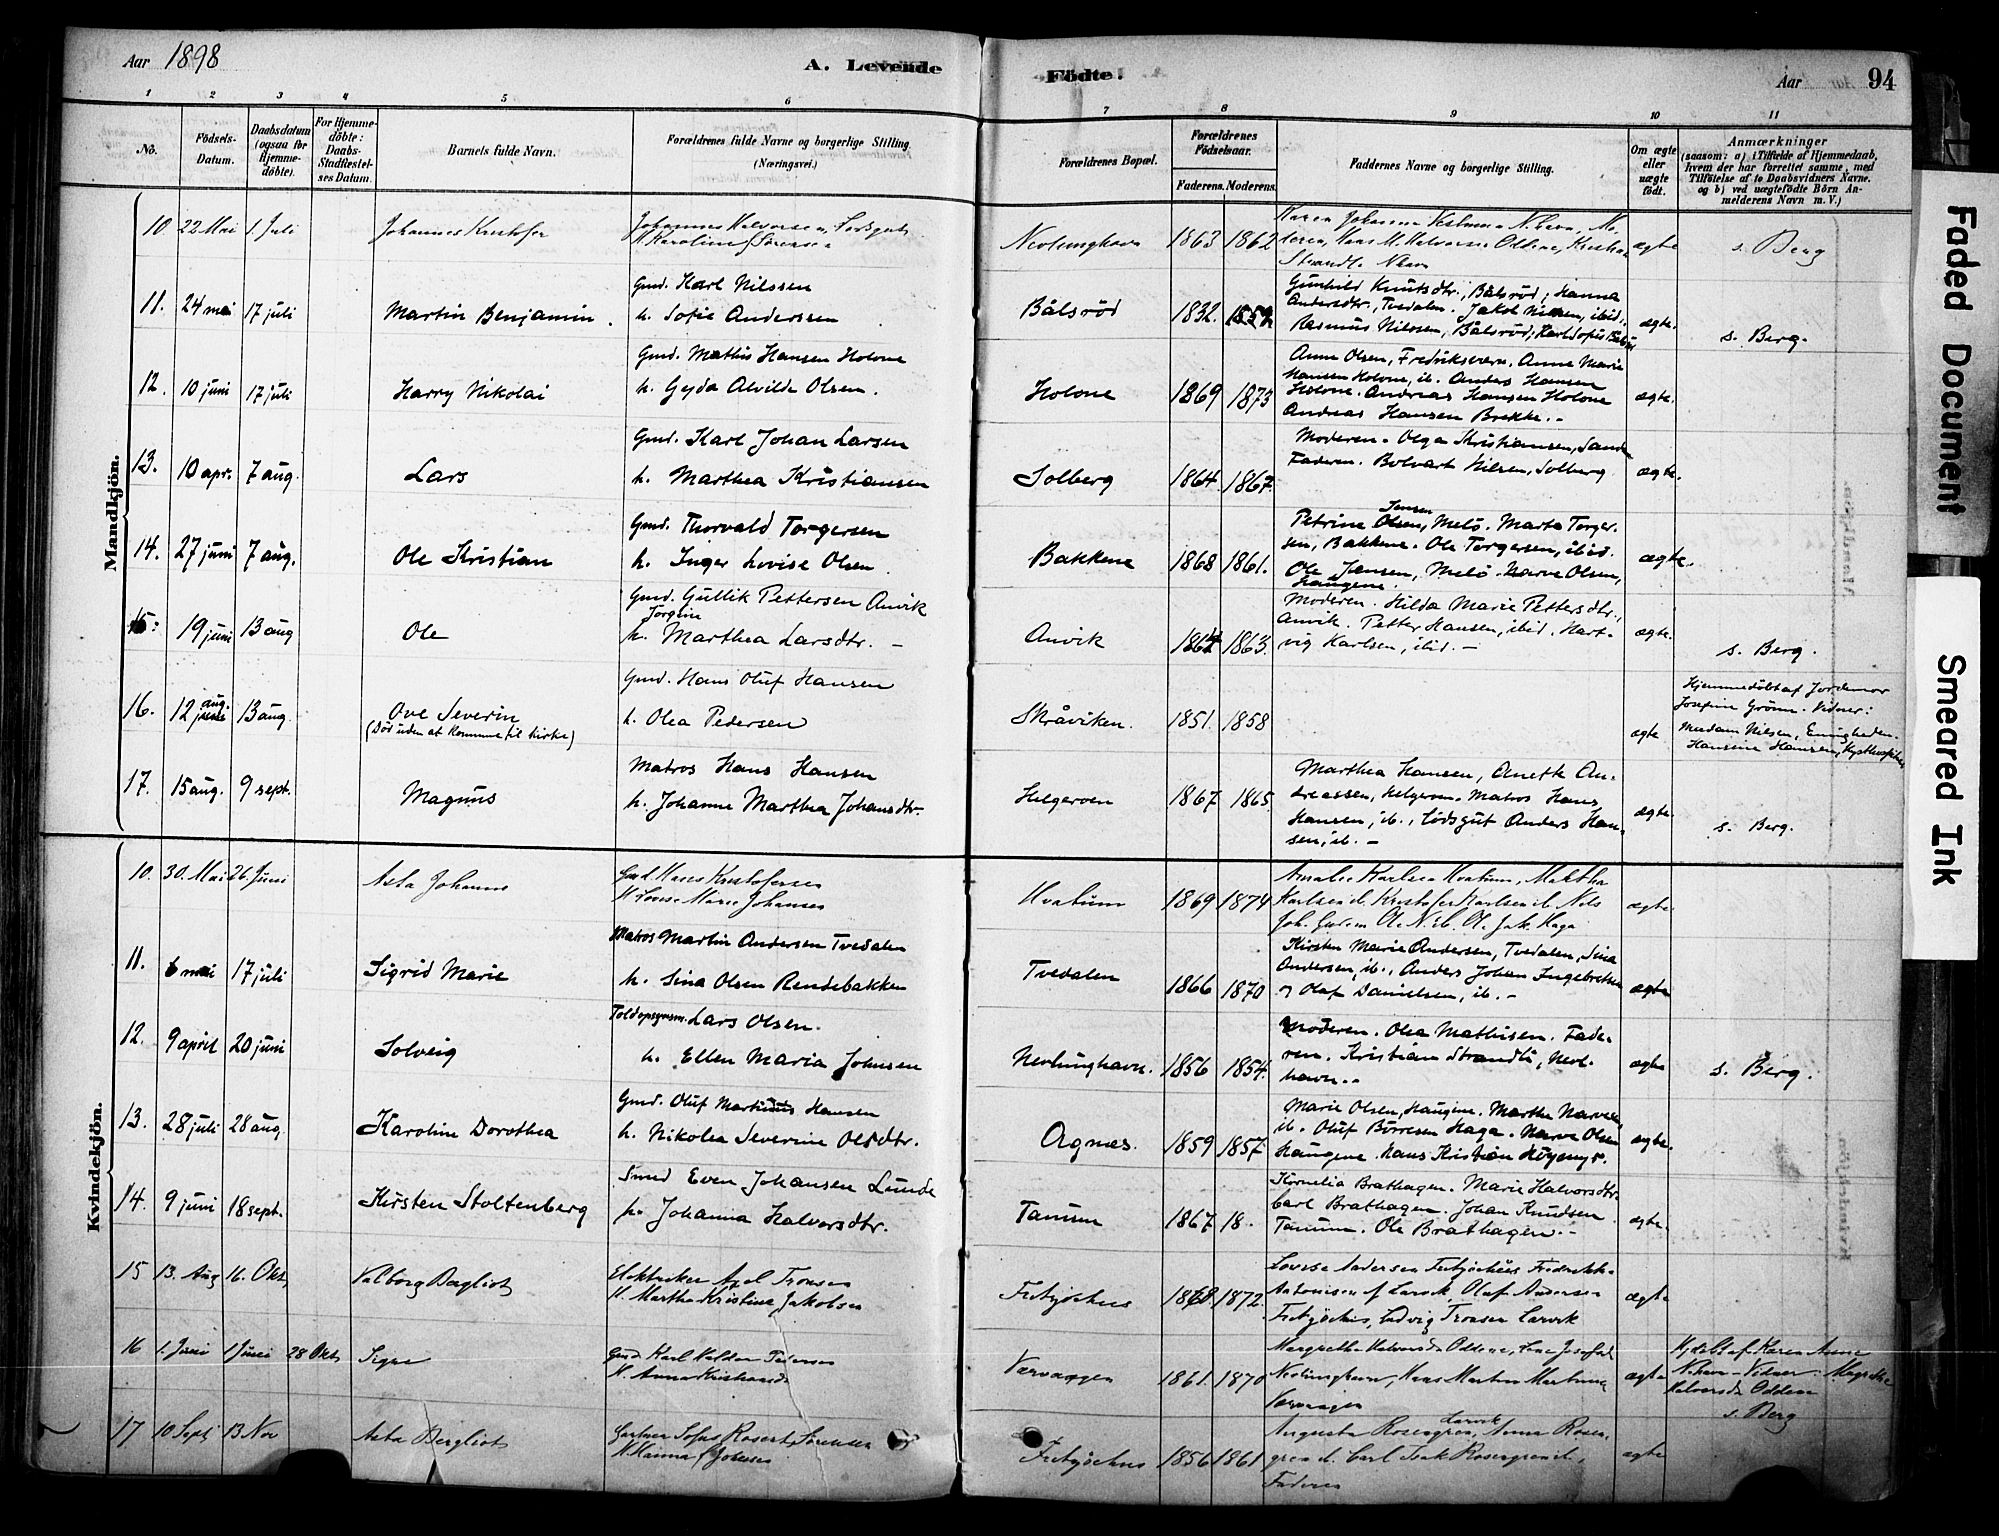 Aar 1898
A. Levende Födte.
Aar 94
1 2 3 4 5 6 7 8 9 10 11
No.
Födsels-Datum.
Daabsdatum (ogsaa för Hjemme-döbte).
For Hjemme-döbte: Daabs-Stadfæstel-ses Datum.
Barnets fulde Navn.
Forældrenes fulde Navne og borgerlige Stilling. (Næringsvei.)
Forældrenes Bopæl.
Forældrenes Födselsaar.
Faderens. Moderens.
Faddernes Navne og borgerlige Stilling.
Om ægte eller uægte födt.
Anmærkninger
(saasom: a) i Tilfælde af Hjemmedaab, hvem der har forrettet samme, med Tilföielse af to Daabsvidners Navne. og b) ved uægtefödte Börn An-melderens Navn m. V.)
Mandkjön.
10. 22 Mai 1. Juli Johannes Kristofer
Johannes Halvorsen, Lodsgut
H. Karoline Sørensen
Nevlunghavn 1863 1862
ægte s. Berg
11. 24 mai 17 juli Martin Benjamin.
Gmd. Karl Nilssen
h. Sofie Anderssen
Bålsrød 1832.
Gunhild Knutsdtr., Bålsrød, Hanna
Andersdtr., Tvedalen. Jakob Nilssen, ibid.
Rasmus Nilssen, Bålsrød,
ægte. s. Berg.
12. 10 juni 17 juli Harry Nikolai
Gmd. Mathis Hansen Holone
h. Gyda Alvilde Olsen.
Holone 1869 1873
Anne Olsen, Fredriksværn, Anne Marie
Hansen Holone, ib. Anders Hansen
Holone. Andreas Hansen Holone
Andreas Hansen Brekke.-
ægte.
13. 10 apr. 7 aug. Lars
Gmd. Karl Johan Larsen
h. Marthea Kristiansen
Solberg 1864. 1867.
Moderen. Olga Kristiansen, Sande
Faderen. Bolvart Nilsen, Solberg.
ægte.
14. 27 juni 7 aug. Ole Kristian
Gmd. Thorvald Torgersen
h. Inger Lovise Olsen.
Bakkene 1868 1861.
Jensen
Petrine Olsen, Melø. Marta Torger-
sen, Bakkene. Ole Torgersen, ibid.
Ole Jensen, Melø. Narve Olsen,
Haugene
ægte.
15. 19 juni 13 aug Ole
Gmd. Gullik Pettersen Anvik
Jørgine
h. Marthea Larsdtr. -
Anvik 1864 1863.
Moderen. Hilda Marie Pettersdtr.,
Anvik. Petter Hansen, ibid. Hart-
vig Karlsen, ibid. -
ægte. s. Berg.
16. 12 aug. 13 aug. Ove Severin
(Død uden at komme til kirke)
Gmd. Hans Oluf Hansen
h. Olea Pedersen
Skråviken. 1851. 1858
ægte
Hjemmedøbt af Jordemor
Josefine Grønn. Vidner:
Madam Nilsen, Enigheden.
Hansine Hansen, Kysthospitalet
17. 15 aug. 9 sept. Magnus
Matros Hans Hansen
h. Johanne Marthea Johansdtr.
Helgeroen 1867 1865
Marthea Hansen, Anette An-
dreassen, Helgeroen. Matros Hans
Hansen, ib., Lodsgut Anders Han-
sen, ib. -
ægte. s. Berg.
Kvindekjön.
10. 30. Mai 26. Juni Asta Johanne
Gmd. Hans Kristofersen
H. Lovise Marie Johansen
Hvatum 1869 1874
Amalie Karlsen Hvatum, Martha
Karlsen ib. Kristofer Karlsen ib. Nils
ægte
11. 6 mai 17 juli Sigrid Marie
Matros Martin Andersen Tvedalen
h. Sina Olsen Rendebakken
Tvedalen 1866 1870
Kirsten Marie Andersen, Tvedalen, Sina
Andersen, ib., Anders Johan Ingebretsen
og Olaf Danielsen, ib. -
ægte
12. 9 april 20 juni Solveig
Toldopsynsm. Lars Olsen.
h. Ellen Maria Johnsen
Nevlunghavn. 1856 1854.
Moderen. Olea Mathisen. Fade-
ren. Kristian Strandli, Nevl-
havn.-
ægte s. Berg.
13. 28 juli 28 aug. Karoline Dorothea
Gmd. Oluf Martinius Hansen
h. Nikolea Severine Olsdtr.
Agnæs. 1859 1857.
Marie Olsen, Haugene. Marthe Narvesen,
ib. Oluf Børresen Haga. Narve Olsen
Haugene. Hans Kristian Høgemyr.
ægte.
14. 9 juni 18 sept. Kirsten Stoltenberg
Smed Even Johansen Lunde
h. Johanna Halvorsdtr.
Tanum 1867 18.
Kornelia Brathagen. Marie Halvorsdtr.
Carl Brathagen. Johan Knudsen
Tanum. Ole Brathagen. -
ægte
15 13. Aug 16. Okt. Valborg Bergliot
Elektriker Axel Tronsen
H. Martha Kristine Jakobsen
Fritzöehus 1868 1872.
Lovise Andersen Fritzöehus Frederikke
Antonisen af Larvik, Oluf Andersen
Fritzöehus, Ludvig Tronsen Larvik
ægte
16 1. Juni 1 Juni 28 Okt Signe
Gmd Karl Valdor Pedersen
H. Anna Kristiansdtr
Varvaagen 1861. 1870
Nevlunghavn, Hans Martin
Varvaagen
ægte
Hj.døbt af Karen Anne
N.havn - Vidner: Magrethe
Halvorsdtr Oddene
s. Berg
17 10 Sept 13 Nov Asta Bergliot
Gartner Sofus Robert Sørensen
H. Hanna Johnsen
Fritzöehus 1856 1861
Larvik
Augusta Rosengren, Anna Rosen-
gren ib. Carl Isak Rosengren ib.
Faderen
ægte
Faded Document
Smeared Ink